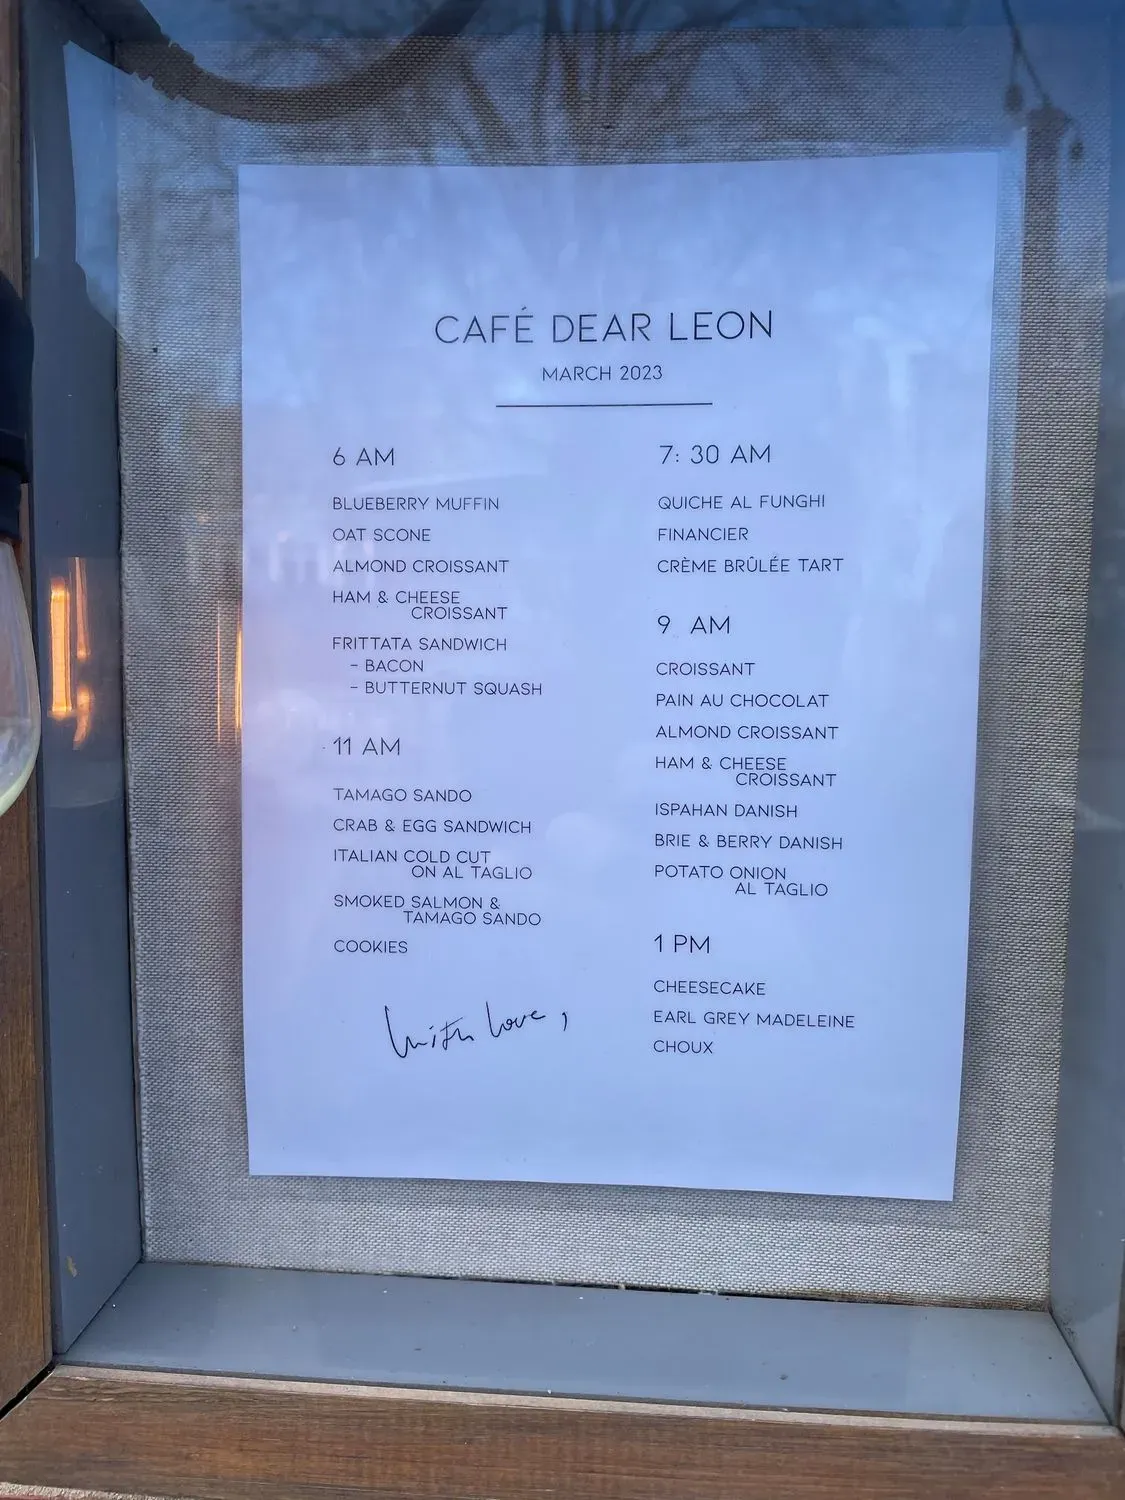 CAFÉ DEAR LEON
MARCH 2023
6 AM
BLUEBERRY MUFFIN
OAT SCONE
ALMOND CROISSANT
HAM & CHEESE
CROISSANT
FRITTATA SANDWICH
- BACON
- BUTTERNUT SQUASH
11 AM
TAMAGO SANDO
CRAB & EGG SANDWICH
ITALIAN COLD CUT
ON AL TAGLIO
SMOKED SALMON &
TAMAGO SANDO
COOKIES
With love,
7: 30 AM
QUICHE AL FUNGHI
FINANCIER
CRÈME BRÛLÉE TART
9 AM
CROISSANT
PAIN AU CHOCOLAT
ALMOND CROISSANT
HAM & CHEESE
CROISSANT
ISPAHAN DANISH
BRIE & BERRY DANISH
POTATO ONION
AL TAGLIO
1 PM
CHEESECAKE
EARL GREY MADELEINE
CHOUX